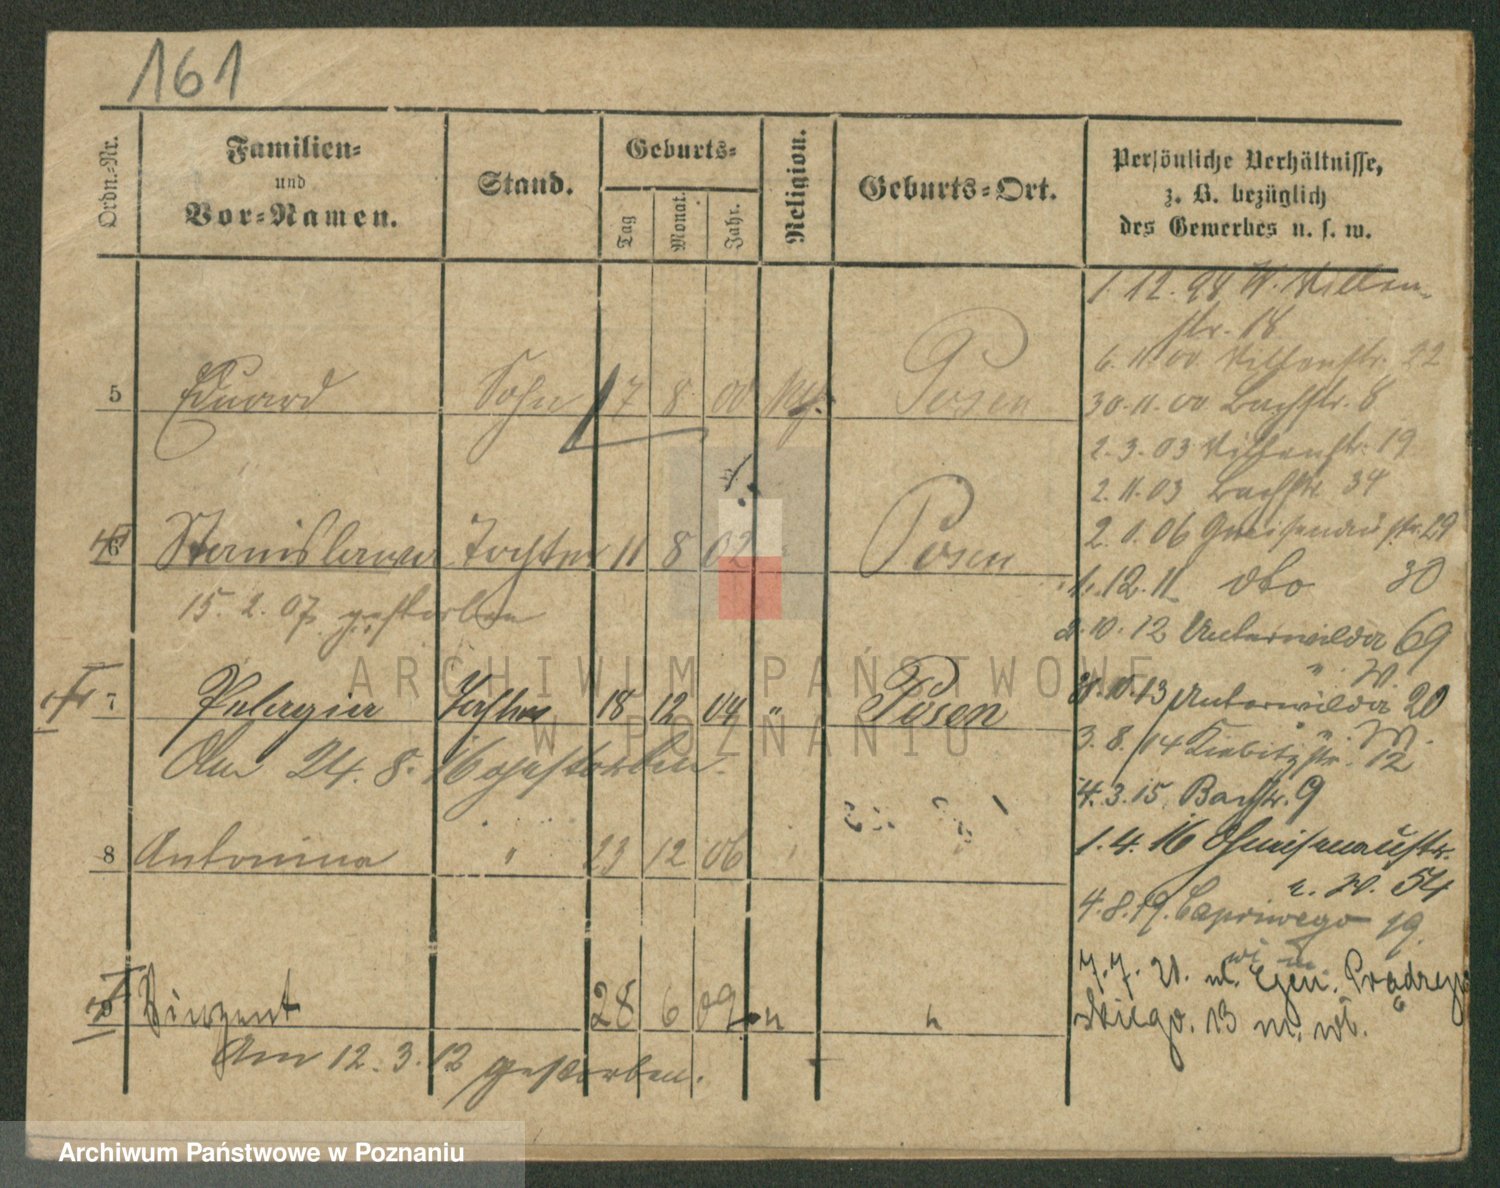 161
Ordn.-Nr.
Familien-
und
Vor-Namen.
Stand.
Geburts-
Tag
Monat.
Jahr.
Religion.
Geburts-Ort.
Persönliche Verhältnisse,
z. B. bezüglich
des Gewerbes u. s. w.
5 Eduard Sohn 17 8 00 Posen
6 Stanislawa Tochter 11 8 02 Posen
15. 2. 07 gestorben
7 Pelagia Tochter 18 12 04 " Posen
Am 24. 8. 16 gestorben.
8 Antonina " 23 12 06
9 Vinzent 28 6 09 " "
Am 12. 3. 12 gestorben.
1. 12. 98 W.
str. 18
6. 11. 00 22
30. 11. 00 Bachstr. 8
2. 3. 03 19
2. 11. 03 Bachstr. 34
2. 1. 06 Gneisenaustr. 29
1. 12. 11 dto 30
2. 10. 12 Unterwilda 69
" W.
10. 13 Unterwilda 20
" W.
3. 8. 14 Kiebitzstr. 12
4. 3. 15. Bachstr. 9
1. 4. 16 Gneisenaustr.
W. 54
4. 8. 19. Capriwego 19.
7. 7. 21. ul. Gen. Prądzyń
skiego. 13 m. wł.
ARCHIWUM PAŃSTWOWE
W POZNANIU
Archiwum Państwowe w Poznaniu